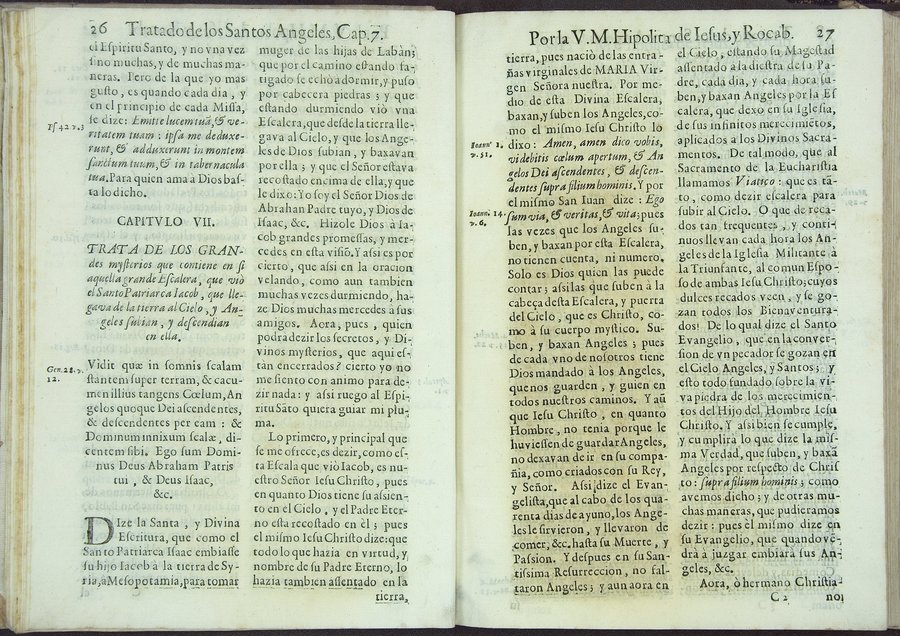 26 Tratado de los Santos Angeles, Cap. 7.
el Espiritu Santo, y no vna vez
sino muchas, y de muchas ma-
neras. Pero de la que yo mas
gusto, es quando cada dia, y
en el principio de cada Missa,
se dize: Emitte lucem tuã, & ve-
Ps 42 v. 3
ritatem tuam: ipsa me deduxe-
runt, & adduxerunt in montem
sanctum tuum, & in tabernacula
tua. Para quien ama à Dios bas-
ta lo dicho.
CAPITVLO VII.
TRATA DE LOS GRAN-
des mysterios que contiene en si
aquella grande Escalera, que viò
el Santo Patriarca Iacob, que lle-
gava de la tierra al Cielo, y An-
geles subian, y descendian
en ella.
Gen. 28. v.
12.
Vidit quæ in somnis scalam
stantem super terram, & cacu-
men illius tangens Cœlum, An
gelos quoque Dei ascendentes,
& descendentes per eam: &
Dominum innixum scalæ, di-
centem sibi. Ego sum Domi-
nus Deus Abraham Patris
tui, & Deus Isaac,
&c.
DIze la Santa, y Divina
Escritura, que como el
Santo Patriarca Isaac embiasse
su hijo Iacob à la tierra de Sy-
ria, a Mesopotamia, para tomar
muger de las hijas de Labàn;
que por el camino estando fa-
tigado se echò a dormir, y puso
por cabecera piedras; y que
estando durmiendo viò vna
Escalera, que desde la tierra lle-
gava al Cielo, y que los Ange-
les de Dios subian, y baxavan
por ella; y que el Señor estava
recostado encima de ella, y que
le dixo: Yo soy el Señor Dios de
Abrahan Padre tuyo, y Dios de
Isaac, &c. Hizole Dios à Ia-
cob grandes promessas, y mer-
cedes en esta visiõ. Y assi es por
cierto, que assi en la oracion
velando, como aun tambien
muchas vezes durmiendo, ha-
ze Dios muchas mercedes à sus
amigos. Aora, pues, quien
podra dezir los secretos, y Di-
vinos mysterios, que aqui es-
tàn encerrados? cierto yo no
me siento con animo para de-
zir nada: y assi ruego al Espi-
ritu Sãto quiera guiar mi plu-
ma.
Lo primero, y principal que
se me ofrece, es dezir, como es-
ta Escala que viò Iacob, es nu-
estro Señor Iesu Christo, pues
en quanto Dios tiene su assien-
to en el Cielo, y el Padre Eter-
no esta recostado en èl; pues
el mismo Iesu Christo dize: que
todo lo que hazia en virtud, y
nombre de su Padre Eterno, lo
hazia tambien assentado en la
tierra,
Por la V. M. Hipolita de Iesus, y Rocab. 27
tierra, pues naciò de las entra-
ñas virginales de MARIA Vir-
gen Señora nuestra. Por me-
dio de esta Divina Escalera,
baxan, y suben los Angeles, co-
mo el mismo Iesu Christo lo
Ioann. 1.
v. 51.
dixo: Amen, amen dico vobis,
videbitis cœlum apertum, & An
gelos Dei ascendentes, & descen-
dentes supra filium hominis. Y por
el mismo San Iuan dize: Ego
Ioann. 14.
v. 6.
sum via, & veritas, & vita; pues
las vezes que los Angeles su-
ben, y baxan por esta Escalera,
no tienen cuenta, ni numero.
Solo es Dios quien las puede
contar; assi las que suben à la
cabeça desta Escalera, y puerta
del Cielo, que es Christo, co-
mo à su cuerpo mystico. Su-
ben, y baxan Angeles; pues
de cada vno de nosotros tiene
Dios mandado à los Angeles,
que nos guarden, y guien en
todos nuestros caminos. Y aũ
que Iesu Christo, en quanto
Hombre, no tenia porque le
huviessen de guardar Angeles,
no dexavan de ir en su compa-
ñia, como criados con su Rey,
y Señor. Assi dize el Evan-
gelista, que al cabo de los qua-
renta dias de ayuno, los Ange-
les le sirvieron, y llevaron de
comer, &c. hasta su Muerte, y
Passion. Y despues en su San-
tissima Resurreccion, no fal-
taron Angeles; y aun aora en
el Cielo, estando su Magestad
assentado à la diestra de su Pa-
dre, cada dia, y cada hora su-
ben, y baxan Angeles por la Es
calera, que dexo en su Iglesia,
de sus infinitos merecimiẽtos,
aplicados a los Divinos Sacra-
mentos. De tal modo, que al
Sacramento de la Eucharistia
llamamos Viatico: que es tã-
to, como dezir escalera para
subir al Cielo. O que de reca-
dos tan frequentes, y conti-
nuos llevan cada hora los An-
geles de la Iglesia Militante à
la Triunfante, al comun Espo-
so de ambas Iesu Christo; cuyos
dulces recados veen, y se go-
zan todos los Bienaventura-
dos! De lo qual dize el Santo
Evangelio, que en la conver-
sion de vn pecador se gozan en
el Cielo Angeles, y Santos; y
esto todo fundado sobre la vi-
va piedra de los merecimien-
tos del Hijo del Hombre Iesu
Christo. Y assi bien se cumple,
y cumplira lo que dize la mis-
ma Verdad, que suben, y baxã
Angeles por respecto de Chris
to: supra filium hominis; como
avemos dicho; y de otras mu-
chas maneras, que pudieramos
dezir: pues èl mismo dize en
su Evangelio, que quando vẽ-
drà à juzgar embiarà sus An-
geles, &c.
Aora, ò hermano Christia-
C 2
no;